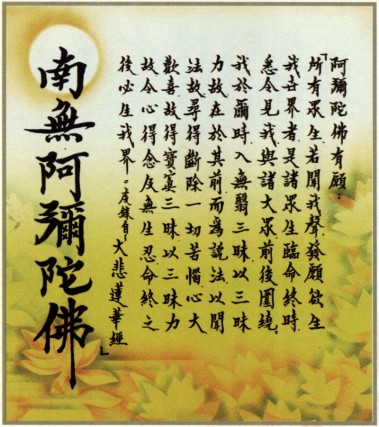 阿彌陀佛有願：
「所有眾生若聞我聲發願欲生
我世界者是諸眾生臨命終時
悉令見我與諸大眾前後圍繞
我於爾時入無翳三昧以三昧
力故在於其前而為說法以聞
法故尋得斷除一切苦惱心大
歡喜故得寶寘三昧以三昧力
故令心得念及無生忍命終之
後必生我界」錄自大悲蓮華經
南無阿彌陀佛